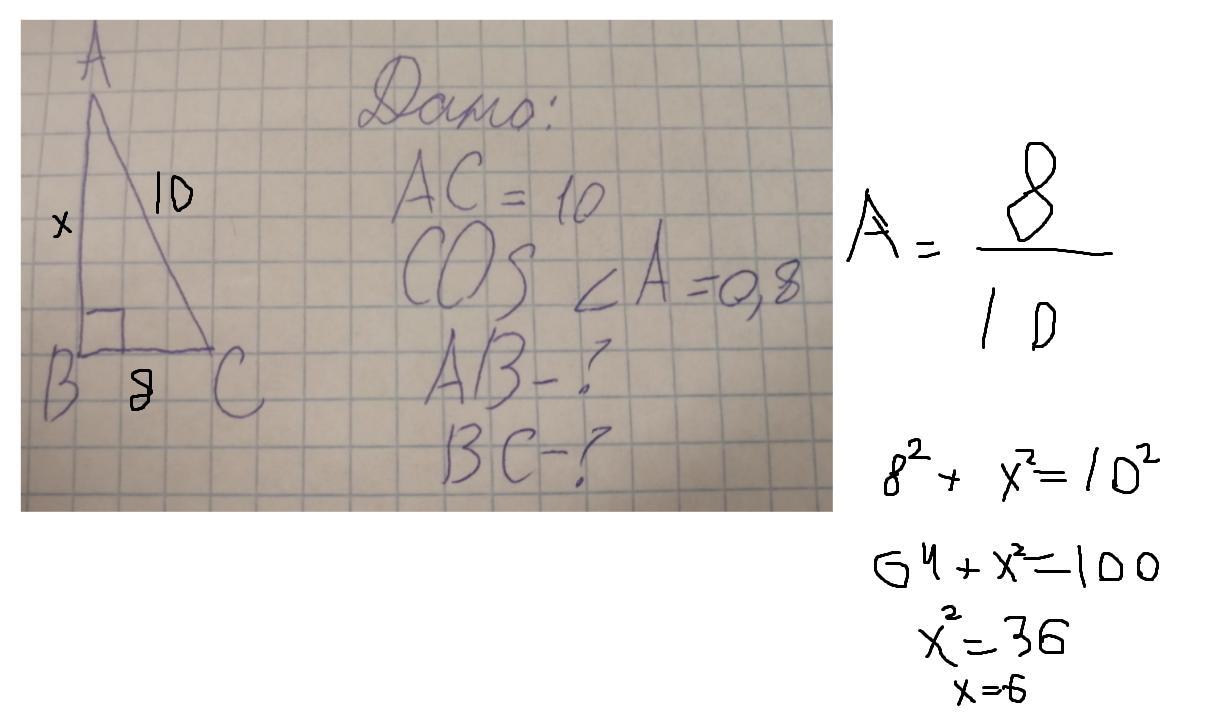 A
10
x
B
8
C
Дано:
AC = 10
COS ∠A = 0,8
AB - ?
BC - ?
A = 8
10
8² + x² = 10²
64 + x² = 100
x² = 36
x = 6